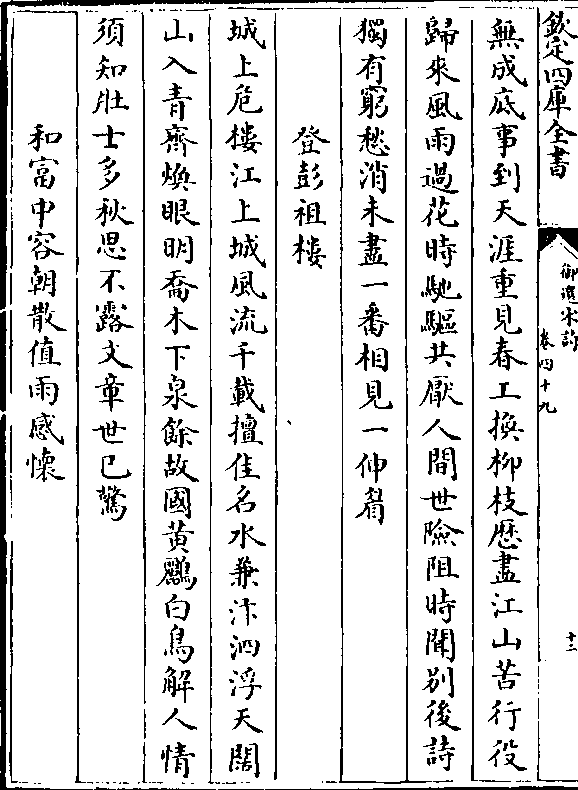 欽定四庫全書
御選宋詩
卷四十九
十三
無成底事到天涯重見春工換柳枝歴盡江山苦行役
歸來風雨過花時馳驅共厭人間世險阻時聞别後詩
獨有窮愁消未盡一番相見一伸眉
登彭祖樓
城上危樓江上城風流千載擅佳名水兼汴泗浮天闊
山入青齊煥眼明喬木下泉餘故國黄鸝白鳥解人情
須知壯士多秋思不露文章世已驚
和富中容朝散值雨感懷